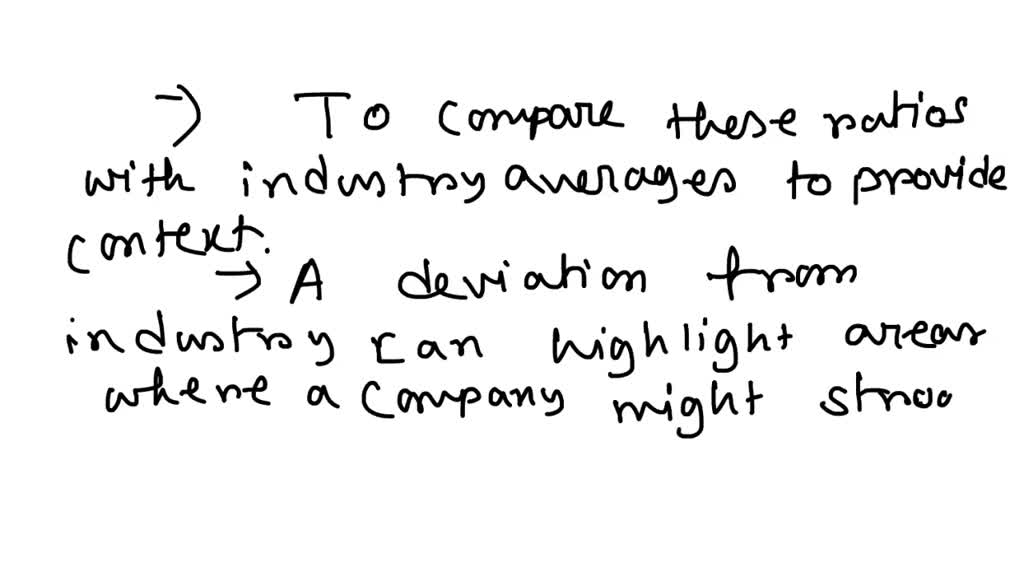 → To compare these ratios
with industry averages to provide
context.
→ A deviation from
industry can highlight areas
where a company might